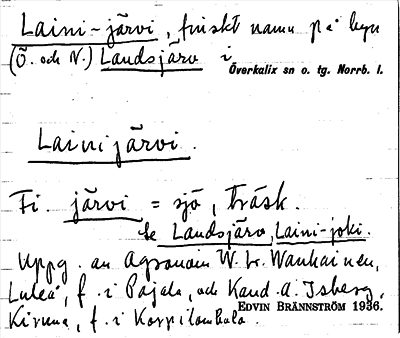 Laini-järvi, finskt namn på byn
(Ö. och N.) Landsjärv i
Överkalix sn o. tg. Norrb. l.
Lainijärvi.
Fi. järvi = sjö, träsk.
Se Landsjärv, Laini-joki.
Uppg. av Agronom W. Wanhainen,
Luleå, f. i Pajala, och Kand. A. Isberg,
Kiruna, f. i Korpilombolo.
EDVIN BRÄNNSTRÖM 1936.